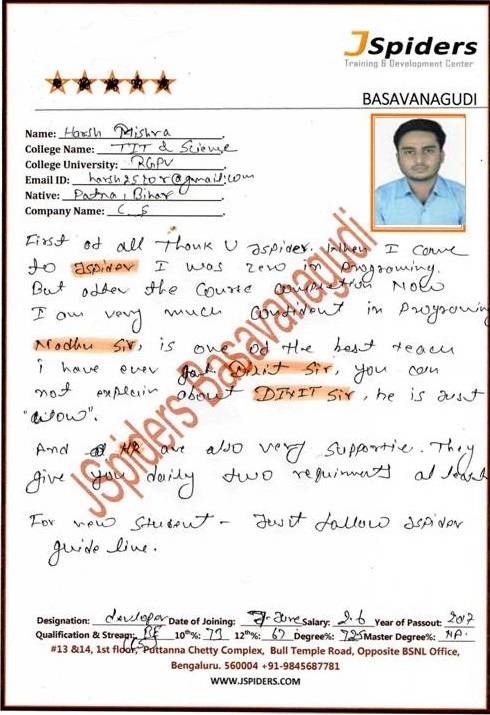 JSpiders
Training & Development Center
BASAVANAGUDI
Name: Harsh Mishra
College Name: TIT & Science
College University: RGPV
Email ID: @gmail.com
Native: Patna, Bihar
Company Name: C S
First of all Thank U Jspider. When I came
to Jspider I was zero in programing.
But after the course completion Now
I am very much confident in programing
Madhu Sir, is one of the best teach
i have ever got. Dixit Sir, you can
not explain about DIXIT Sir, he is Just
"wow".
And HR are also very supportie. They
give you daily two requirments at least
For new Student - Just follow Jspider
guide line.
JSpiders Basavanagudi
Designation: developer Date of Joining: June Salary: 2.6 Year of Passout: 2017
Qualification & Stream: BE 10th%: 73 12th%: 67 Degree%: 72.5 Master Degree%: NA.
#13 &14, 1st floor, Puttanna Chetty Complex, Bull Temple Road, Opposite BSNL Office,
Bengaluru. 560004 +91-9845687781
WWW.JSPIDERS.COM